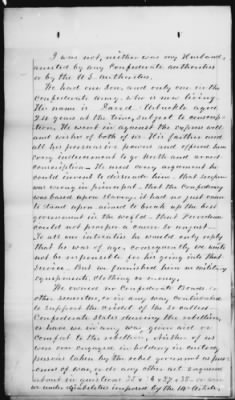 I was not, neither was my Husband,
arrested by any Confederate authorities
or by the U.S. authorities.
We had one Son, and only one in the
Confederate army, who is now living.
His name is David Arbuckle aged
24 years at the time, subject to conscrip-
tion, He went in against the express will
and wishes of both of us. His father used
all his persuasive powers and offered him
every inducement to go North and avoid
conscription. He used any argument he
could invent to dissuade him, that secession
was wrong in principal. that the Confederacy
was based upon slavery, it had no just cause
to stand upon. aimed to break up the best
government in the world. that Providence
could not prosper a cause so unjust.
To all our intreaties he would only reply
that he was of age, consequently we could
not be responsible for his going into that
Service. But we furnished him no military
equipments, clothing or money.
We owned no Confederate bonds or
other securities, or in any way contributed
to support the credit of the so called
Confederate States during the rebellion,
or have we in any way given aid or
comfort to the rebellion, neither of us
were ever engaged in holding in custody
persons taken by the rebel government as pris-
oners of war, or do any other act enquired
about in questions 35 &
under disabilities imposed by the 14th Article